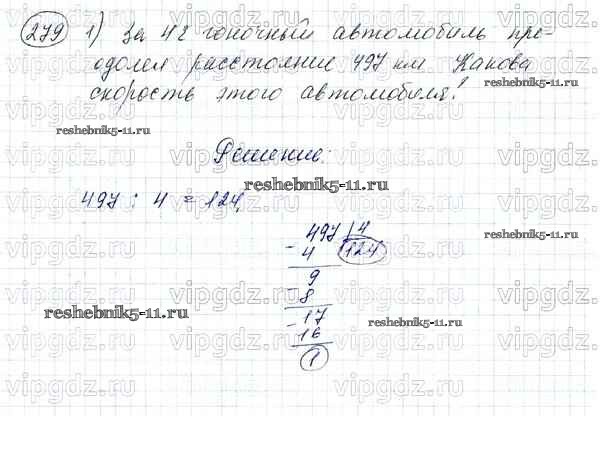 279 1) За 4 г гоночный автомобиль пре-
одолел расстояние 497 км Какова
скорость этого автомобиля?
reshebnik5-11.ru reshebnik5-11.ru
vipgdz.ru vipgdz.ru vipgdz.ru vipgdz.ru
Решение:
reshebnik5-11.ru
497 : 4 = 124,
vipgdz.ru vipgdz.ru vipgdz.ru vipgdz.ru
497 | 4
reshebnik5-11.ru
- 4 124
9
- 8
vipgdz.ru vipgdz.ru vipgdz.ru vipgdz.ru
reshebnik5-11.ru
- 17
reshebnik5-11.ru
16
1
vipgdz.ru vipgdz.ru vipgdz.ru vipgdz.ru